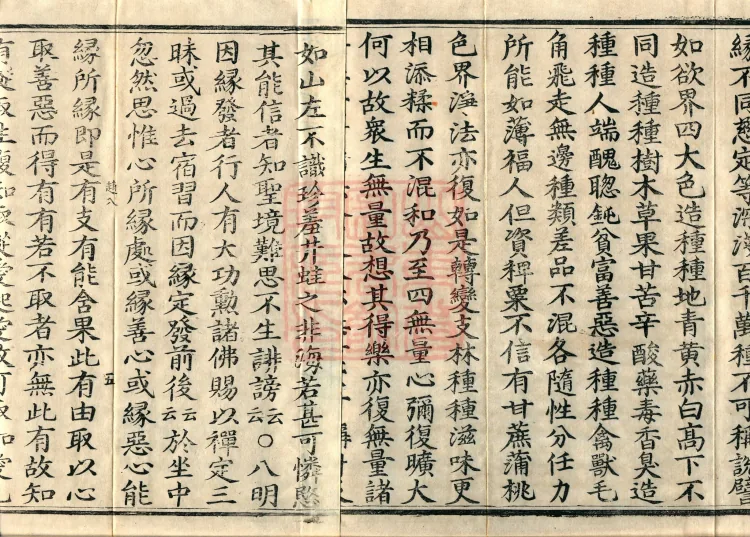 縁不同想定等法法百千萬種不可稱說譬
如欲界四大色造種種地青黄赤白髙下不
同造種種樹木草果甘苦辛酸藥毒香臭造
種種人端醜聦鈍貧富善惡造種種禽獸毛
角飛走無邊種類差品不混各隨性分任力
所能如薄福人但資稗粟不信有甘蔗蒲桃
色界淨法亦復如是轉變支林種種滋味更
相添糅而不混和乃至四無量心彌復曠大
何以故衆生無量故想其得樂亦復無量諸
如山左不識珍羞井蛙之非海若甚可憐愍
其能信者知聖境難思不生誹謗云云○八明
因縁發者行人有大功勲諸佛賜以禪定三
昧或過去宿習而因縁定發前後云云於坐中
忽然思惟心所縁處或縁善心或縁惡心能
趙八
五
縁所縁即是有支有能含果此有由取以心
取善惡而得有有若不取者亦無此有故知